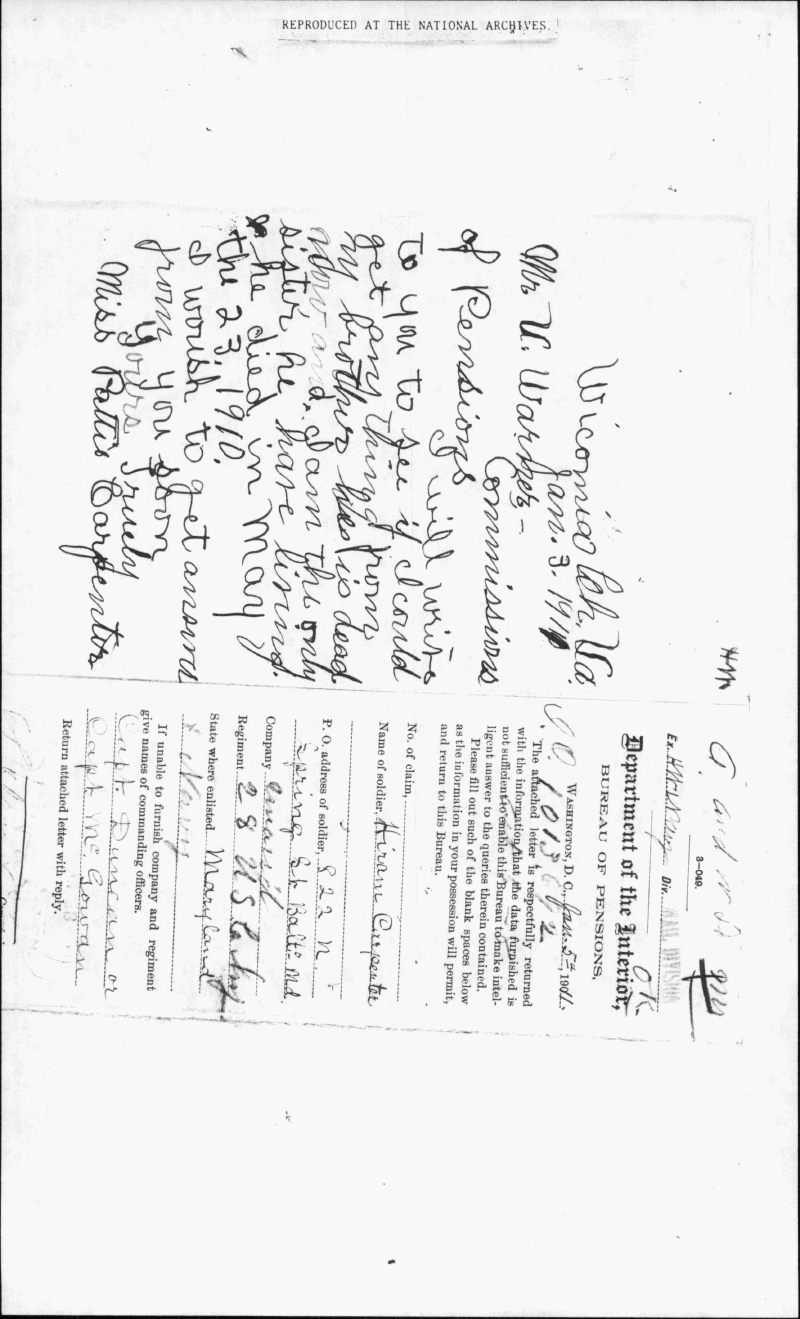 REPRODUCED AT THE NATIONAL ARCHIVES.
Wicomico Ch. Va.
Jan. 3. 1911
Mr. V. Warner—
Commissions
of Pensions
I will write
to you to see if I could
get any thing from
my brother he is dead
now and I am the only
sister he have living.
he died in May
the 23, 1910.
I woush to get answer
from you soon
yours Truely
Miss Pattie Carpenter
HM
G. and
3—049.
Ex. Div.
MAIL DIVISION
OK
Department of the Interior,
BUREAU OF PENSIONS,
WASHINGTON, D. C., Jan. 5th, 1911.
The attached letter is respectfully returned
with the information that the data furnished is
not sufficient to enable this Bureau to make intel-
ligent answer to the queries therein contained.
Please fill out such of the blank spaces below
as the information in your possession will permit,
and return to this Bureau.
No. of claim,
Name of soldier, Hiram Carpenter
P. O. address of soldier, 822 N.
Spring St. Balto Md.
Company
Regiment 28 U S
State where enlisted Maryland
If unable to furnish company and regiment
give names of commanding officers.
Capt. Duncan or
Capt. McGowan
Return attached letter with reply.